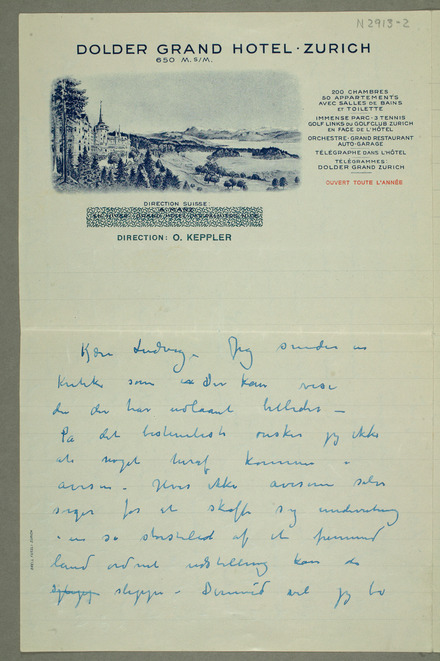 N 2913-2
DOLDER GRAND HOTEL · ZURICH
650 M. S/M.
200 CHAMBRES
50 APPARTEMENTS
AVEC SALLES DE BAINS
ET TOILETTE
IMMENSE PARC - 3 TENNIS
GOLF LINKS DU GOLFCLUB ZURICH
EN FACE DE L'HÔTEL
ORCHESTRE - GRAND RESTAURANT
AUTO-GARAGE
TÉLÉGRAPHE DANS L'HÔTEL
TÉLÉGRAMMES:
DOLDER GRAND ZURICH
OUVERT TOUTE L'ANNÉE
DIRECTION SUISSE:
DIRECTION: O. KEPPLER
Kjære Ludvig - Jeg sender en
som Du kan vise
de der har billeder -
På det bestemteste ønsker jeg ikke
at noget herav kommer i
avisen - Hvis ikke avisene selv
sørger for at skaffe sig underretning
om en så av et fremmed
land ordnet utstilling kan de
slippe - Dermed vil jeg